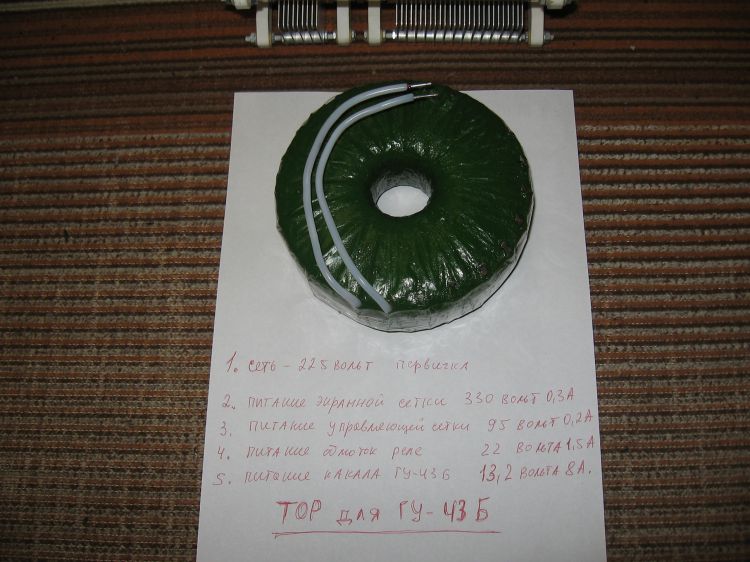 1. сеть - 225 вольт первичка
2. питание экранной сетки 330 вольт 0,3А
3. питание управляющей сетки 95 вольт 0,2А
4. питание обмоток реле 22 вольта 1,5А
5. питание накала ГУ-43Б 13,2 вольта 8А.
ТОР для ГУ-43Б